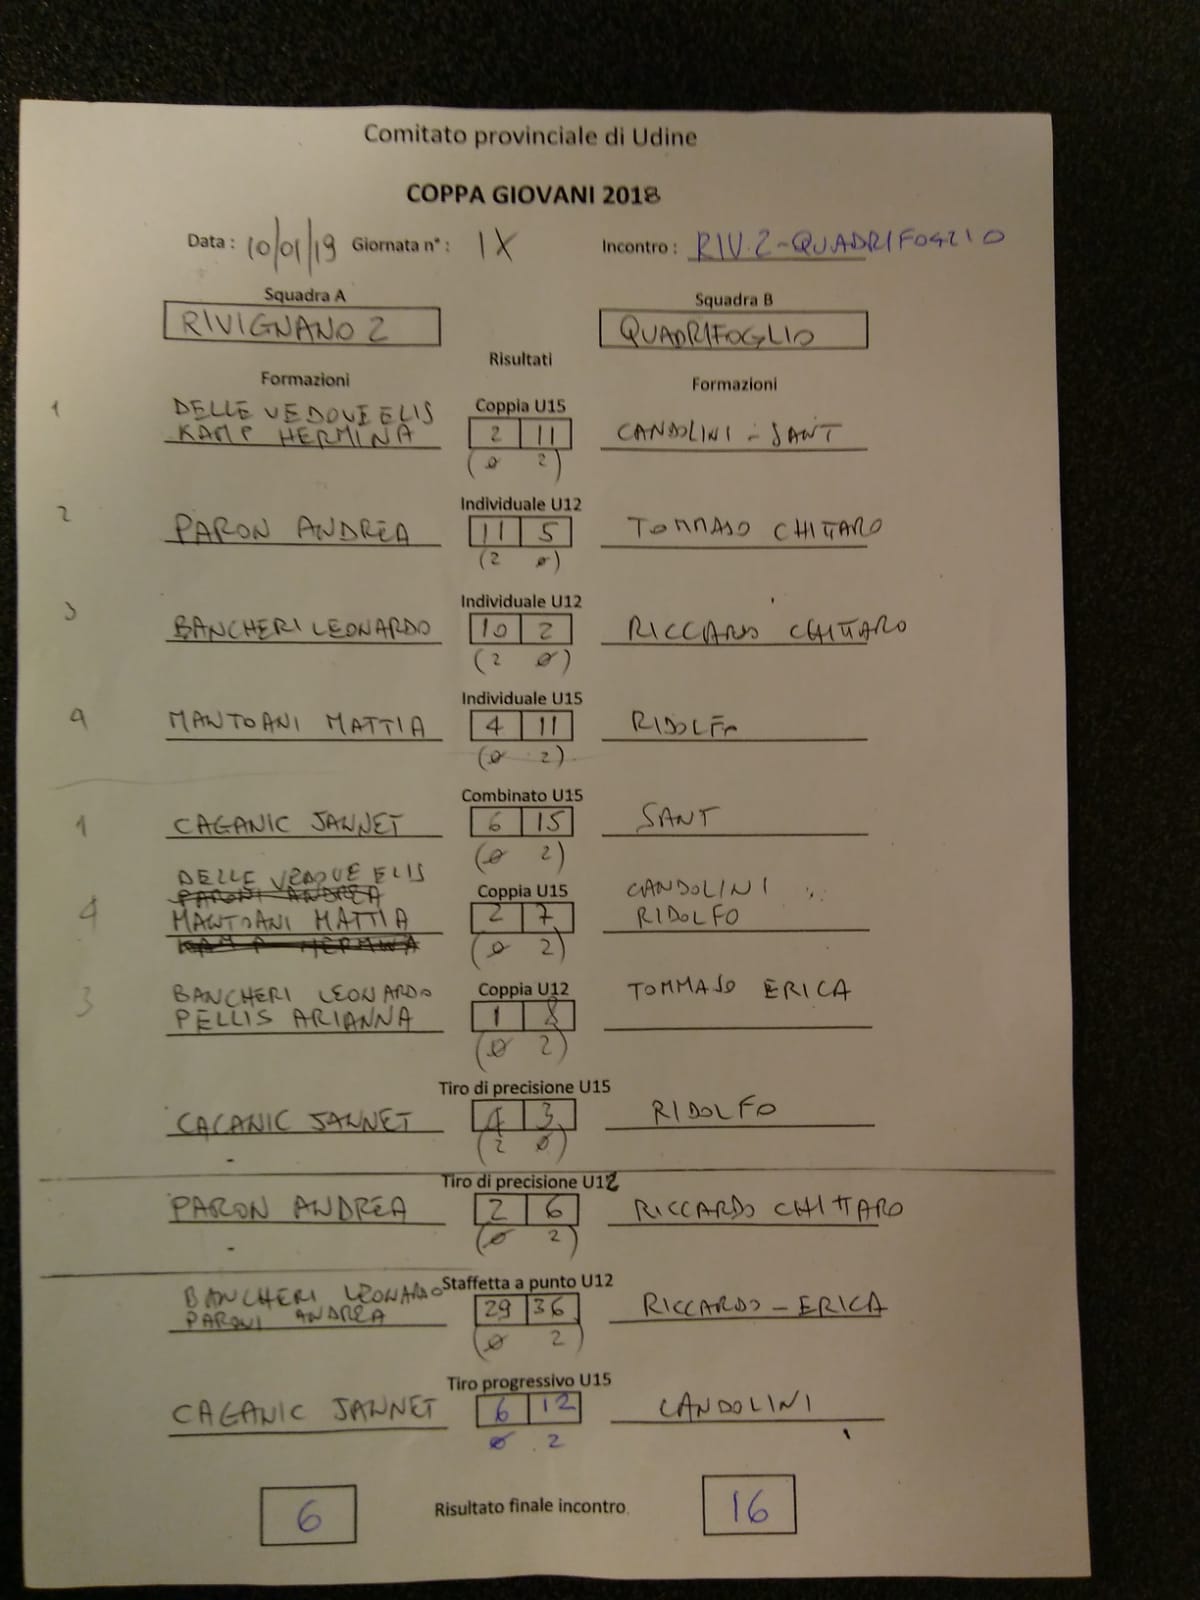 Comitato provinciale di Udine
COPPA GIOVANI 2018
Data : 10/01/19 Giornata n° : IX Incontro : RIV.2-QUADRIFOGLIO
Squadra A Squadra B
RIVIGNANO 2 QUADRIFOGLIO
Risultati
Formazioni Formazioni
1 DELLE VEDOVE ELIS Coppia U15
KAMP HERMINA 2 11 CANDOLINI - SANT
(0 2)
2 Individuale U12
PARON ANDREA 11 5 TOMMASO CHITTARO
(2 0)
3 Individuale U12
BANCHERI LEONARDO 10 2 RICCARDO CHITTARO
(2 0)
Individuale U15
MANTOANI MATTIA 4 11
(0 2)
Combinato U15
1 CAGANIC JANNET 6 15 SANT
(0 2)
DELLE VEDOVE ELIS
PARONI ANDREA Coppia U15 CANDOLINI
4 MANTOANI MATTIA 2 7 RIDOLFO
KAMP HERMINA (0 2)
Coppia U12
3 BANCHERI LEONARDO TOMMASO ERICA
PELLIS ARIANNA 1 8
(0 2)
Tiro di precisione U15
CAGANIC JANNET 4 3 RIDOLFO
(2 0)
Tiro di precisione U12
PARON ANDREA 2 6 RICCARDO CHITTARO
(0 2)
Staffetta a punto U12
BANCHERI LEONARDO
PARONI ANDREA 29 36 RICCARDO - ERICA
(0 2)
Tiro progressivo U15
CAGANIC JANNET 6 12 CANDOLINI
0 2
6 Risultato finale incontro. 16